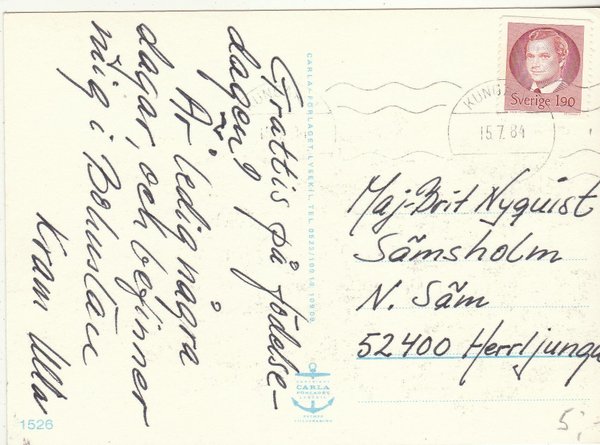 Grattis på födelse-
dagen!
Är ledig några
dagar, och befinner
mig i Bohuslän
Kram Ulla
1526
CARLA-FÖRLAGET, LYSEKIL, TEL. 0523/100 18, 109 08
CARLA
FÖRLAGET
LYSEKIL
Sverige 190
KUNGÄ
15.7.84
Maj-Brit Nyquist
Sämsholm
N. Säm
52400 Herrljunga
5:-